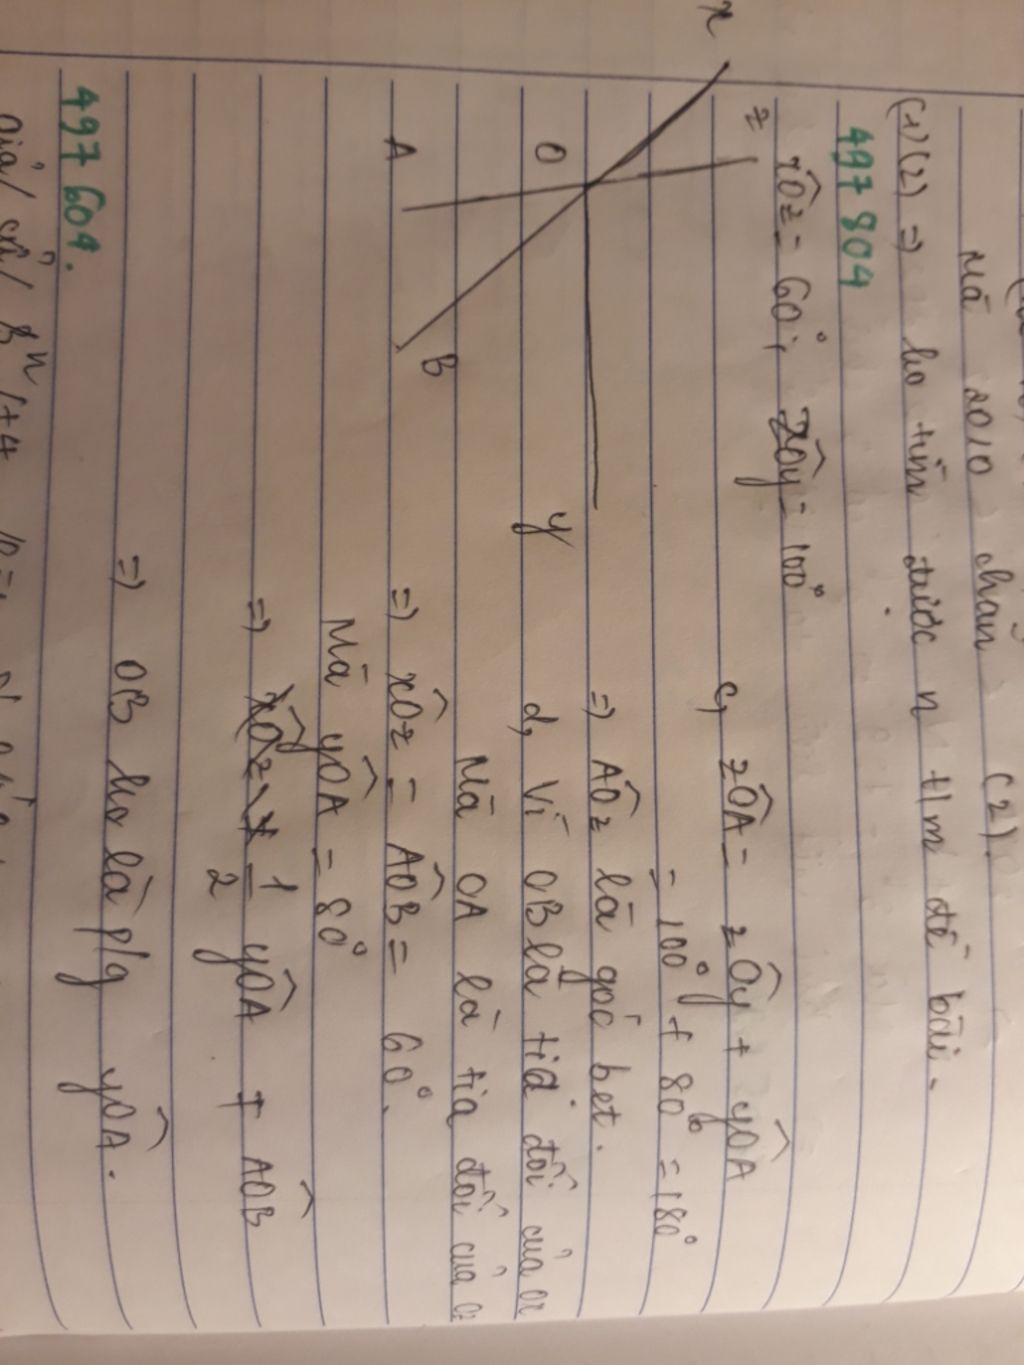 Mà 2010 chẵn (2).
(1)(2) => ko tìm được n t/m đề bài.
497 804
xÔz = 60°; zÔy = 100°
x
z
O
A
B
y
c, zÔA = zÔy + yÔA
= 100° + 80° = 180°
=> AÔz là góc bẹt.
d, Vì OB là tia đối của Ox
Mà OA là tia đối của Oz
=> xÔz = AÔB = 60°.
Mà yÔA = 80°
=> 1/2 yÔA ≠ AÔB
=> OB ko là p/g yÔA.
497 604.